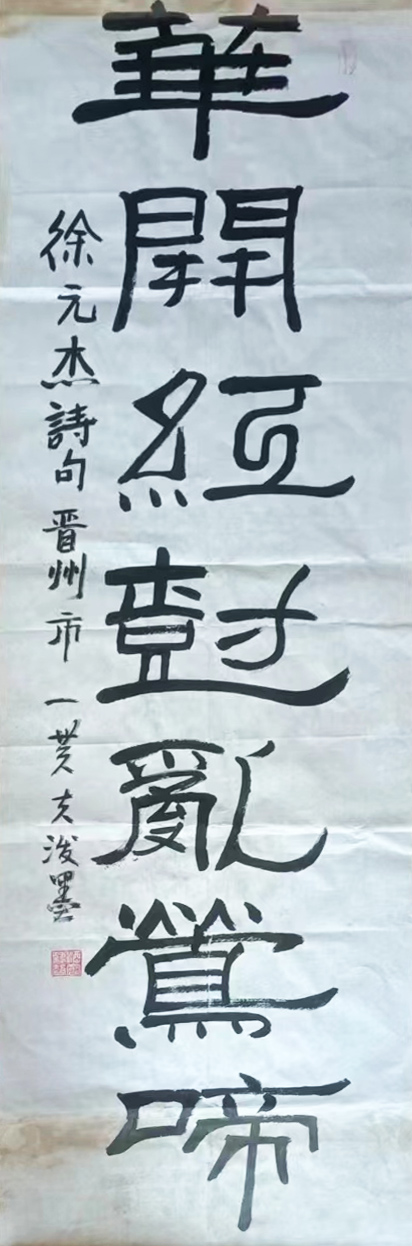 華開紅樹亂鶯啼
徐元杰詩句晋州市一墨